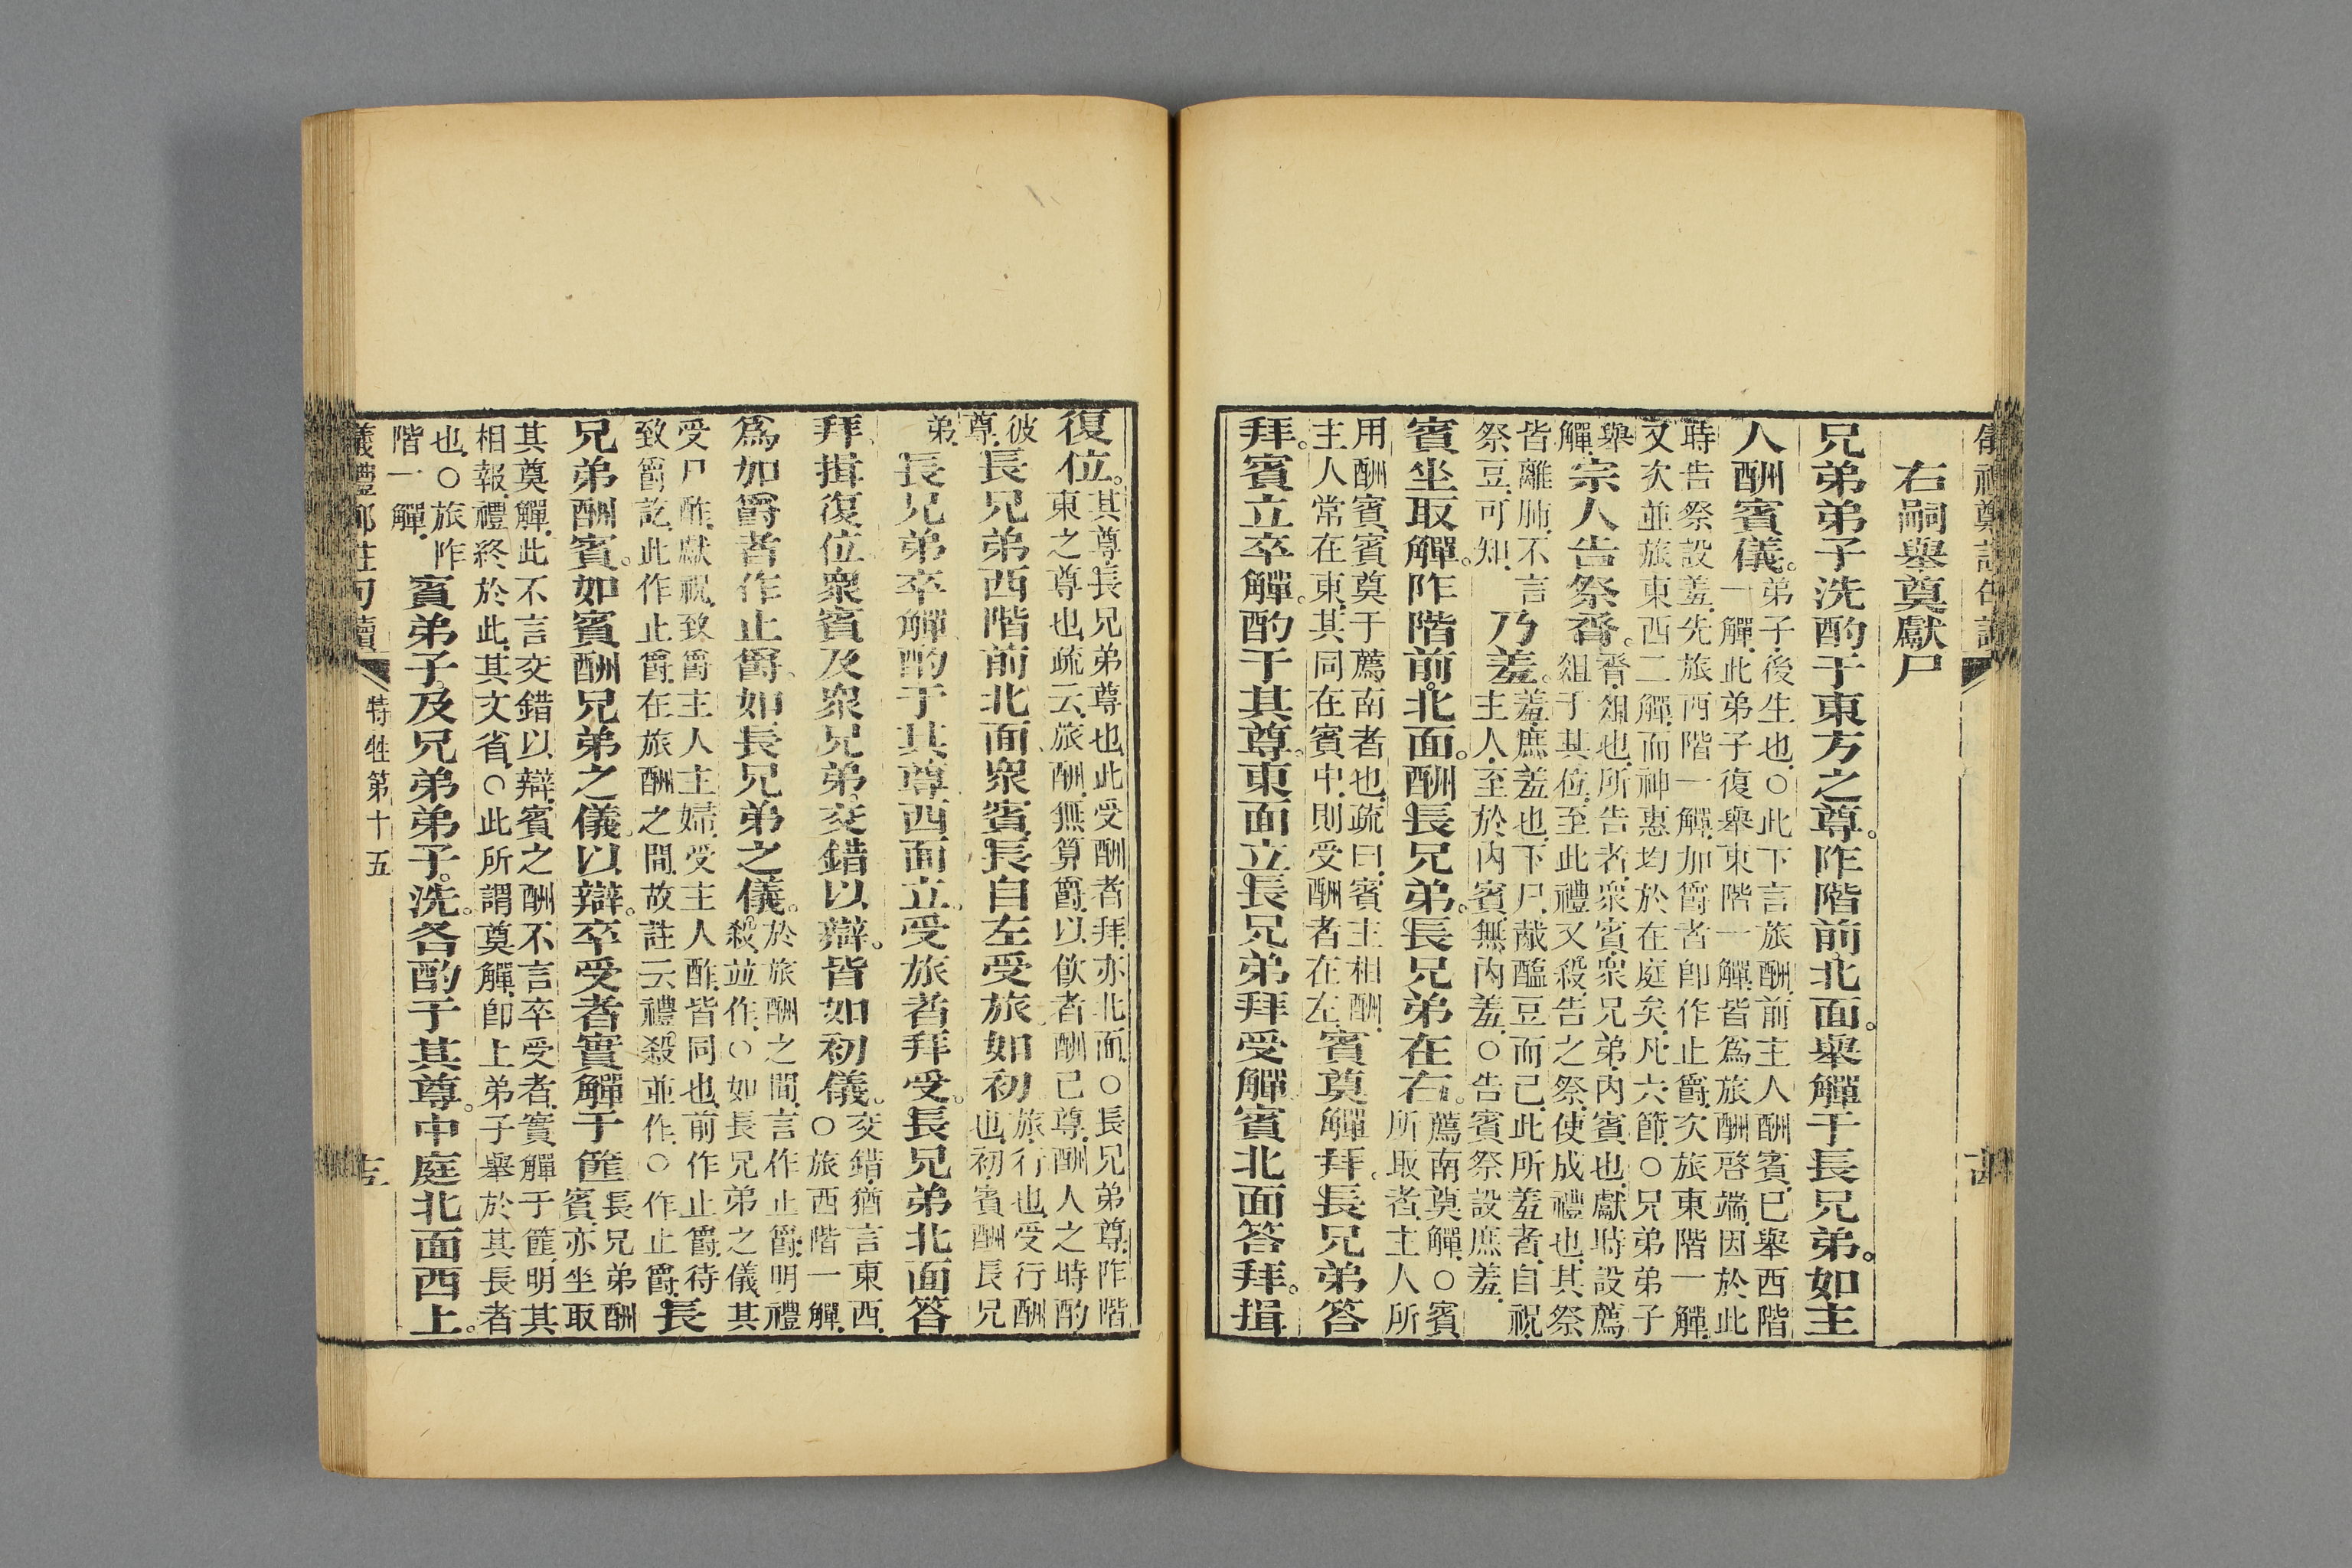 右嗣舉奠獻尸
兄弟弟子洗酌于東方之尊。阼階前北面。舉觶于長兄弟。如主
人酬賓儀。弟子、後生也。○此下言旅酬、前主人酬賓、已舉西階
一觶、此弟子復舉東階一觶、皆爲旅酬啓端、因於此
時告祭設羞、先旅西階一觶、加爵者即作止爵、次旅東階一觶、
又次並旅東西二觶、而神惠均於在庭矣、凡六節、○兄弟弟子
舉
觶、宗人告祭脀。脀、俎也、所告者、衆賓、衆兄弟、內賓也、獻時設薦
俎于其位、至此禮又殺、告之祭、使成禮也、其祭
皆離肺、不言
祭豆、可知、乃羞。羞、庶羞也、下尸、胾醢豆而已、此所羞者、自祝
主人、至於內賓、無內羞、○告賓祭設庶羞、
賓坐取觶。阼階前。北面。酬長兄弟。長兄弟在右。薦南奠觶、○賓
所取者、主人所
用酬賓、賓奠于薦南者也、疏曰、賓主相酬、
主人常在東、其同在賓中、則受酬者在左、賓奠觶拜。長兄弟答
拜。賓立卒觶。酌于其尊。東面立。長兄弟拜受觶賓北面答拜。揖
復位。其尊、長兄弟尊也、此受酬者拜、亦北面、○長兄弟尊、阼階
東之尊也、疏云、旅酬、無算爵、以飲者酬己尊、酬人之時酌
彼
尊、長兄弟西階前北面衆賓長自左受旅如初旅、行也、受行酬
也、初、賓酬長兄
弟、
長兄弟卒觶酌于其尊西面立。受旅者拜受。長兄弟北面答
拜、揖復位衆賓及衆兄弟交錯以辯。皆如初儀。交錯、猶言東西、
○旅西階一觶、
爲加爵者作止爵。如長兄弟之儀。於旅酬之間、言作止爵、明禮
殺並作、○如長兄弟之儀、其
受尸酢、獻祝、致爵主人主婦、受主人酢、皆同也、前作止爵、待
致爵訖、此作止爵、在旅酬之間、故註云禮。殺並作、○作止爵、長
兄弟酬賓。如賓酬兄弟之儀。以辯。卒受者實觶于篚長兄弟酬
賓、亦坐取
其奠觶、此不言交錯以辯、賓之酬不言卒受者、實觶于篚、明其
相報、禮終於此、其文省、○此所謂奠觶、即上弟子舉於其長者
也、○旅阼
階一觶、賓弟子。及兄弟弟子。洗。各酌于其尊。中庭北面西上。
特牲第十五